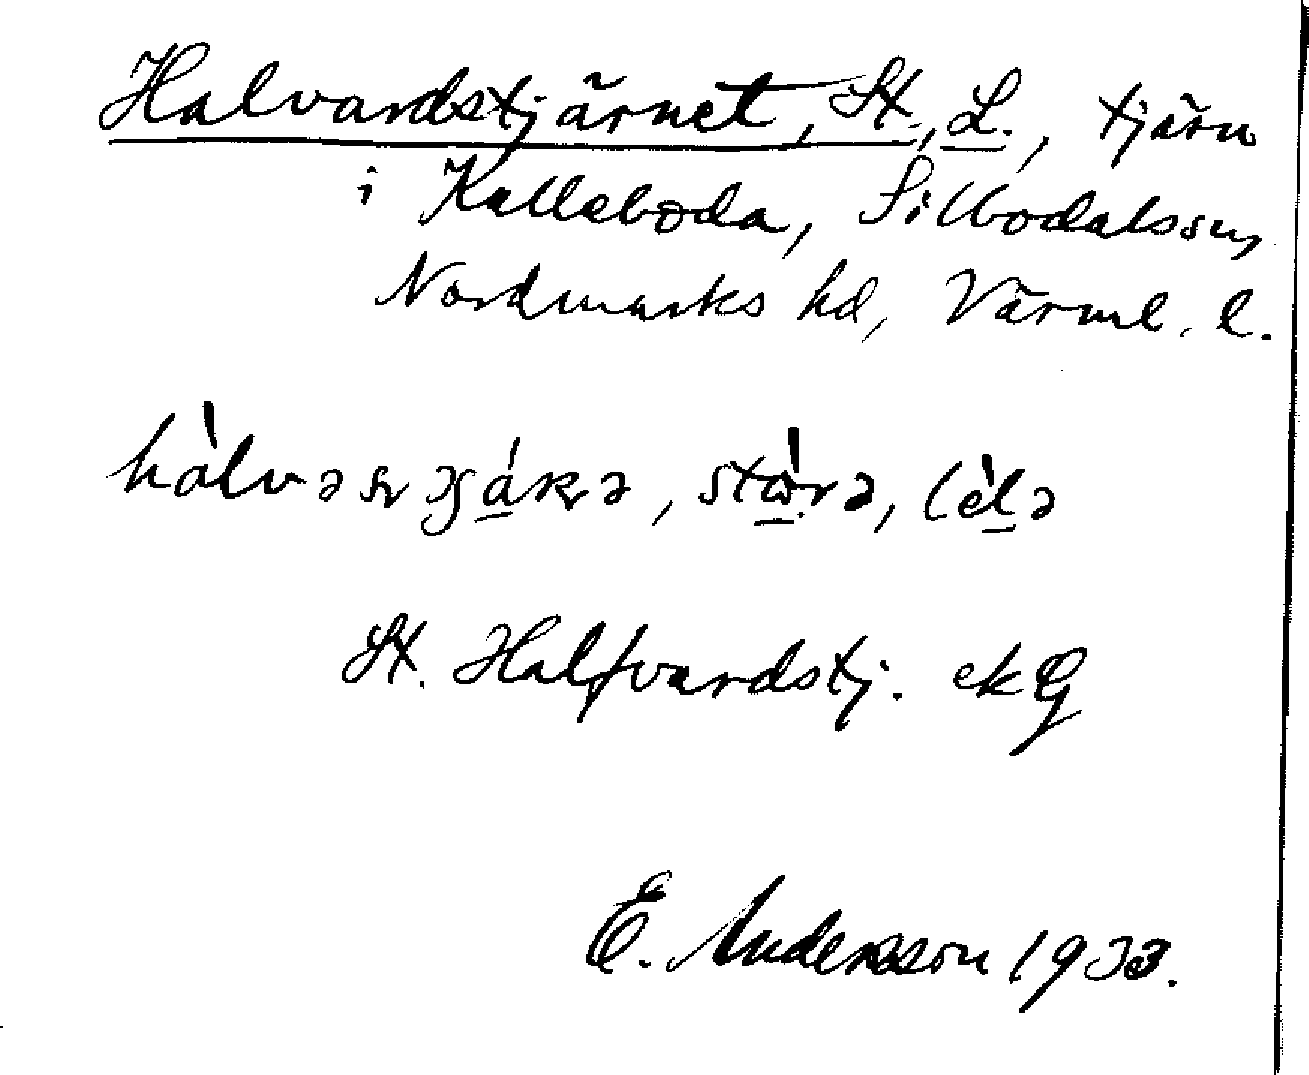 Halvardstjärnet, St., L., tjärn
i Kalleboda, Silbodals sn,
Nordmarks hd, Värml. l.
stὼrə, lèlə
St. Halfvardstj. ekG
E. Andersson 1933.